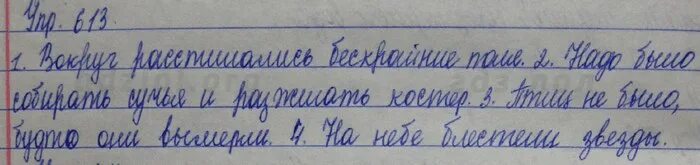 Упр. 613
1. Вокруг расстилались бескрайние поля. 2. Надо было
собирать сучья и разжигать костер. 3. Птиц не было,
будто они вымерли. 4. На небе блестели звезды.